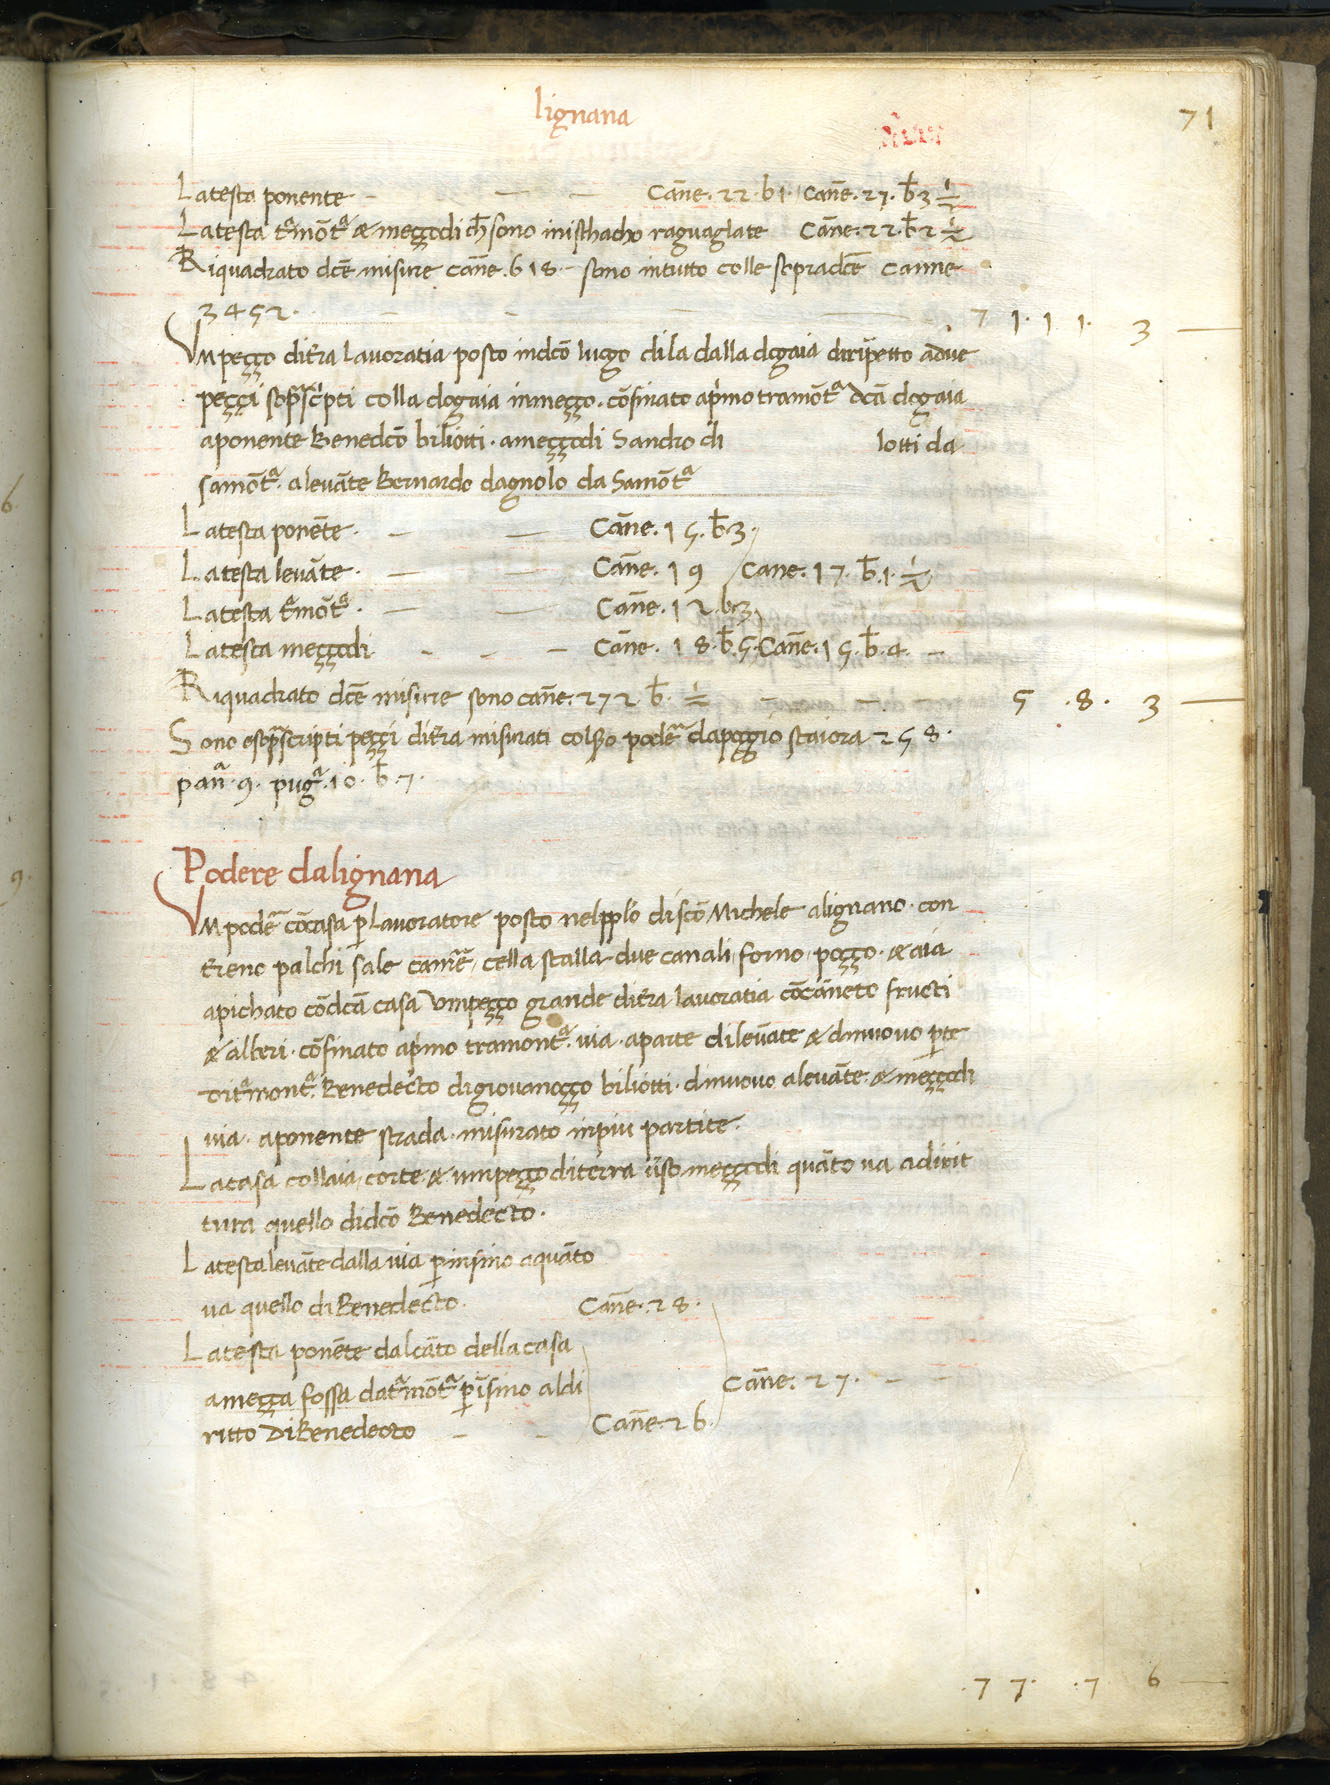 lignana
71
Latesta ponente – – – Cañe. 22. b 1. Cañe. 27. b̄ 3 1/2
Latesta t̃mōt̃ & meççodi ch̄ sono inisthacho raguaglate Cañe. 22. b̄ 2 1/2
Riquadrato dcẽ misure cañe. 618. – sono intutto colle sopradcẽ canne
3452. – – – 7 1. 11. 3 —
Vmpeçço dit̃ra lavoratia posto indcõ luogo dila dalla dogaia diripetto adue
peççi sop̃scripti colla dogaia inmeçço. cōfinato ap̃mo tramōt̃ª dcã dogaia
aponente Benedcõ biliotti. ameççodi Sandro di lotti da
samōt̃ª. alevãte Bernardo dagnolo da Samōt̃ª
Latesta ponẽte. – – Cañe. 15. b̄ 3.
Latesta levãte. – – Cañe. 19 Cane. 17. b̄. 1. 1/2
Latesta t̃mōt̃ª. – – Cañe. 12. b 3
Latesta meççodi – – – – Cañe. 18. b̄. 5. Cañe. 15. b̄. 4. –
Riquadrato dcẽ misure sono cañe. 272 b̄. 1/2 – – 5 . 8. 3 —
Sono esop̃ascripti peççi dit̃ra misurati colp̄so poderª dapoggio staiora 258.
panª. 9. pugª. 10. b̄. 7.
Podere dalignana
Vmpoderẽ cõcasa p̱ lavoratore posto nelpp̃lo discõ Michele alignano. con
t̃reno palchi sale cam̃e, cella stalla due canali, forno, poçço. & aia
apichato cōdcã casa umpeçço grande dit̃ra lavoratia cōcãneto fructi
& alberi. cōfinato ap̃mo tramontª. via. aparte dilevãte & dinuovo p̱te
dit̃montª. Benedecto digiovanoçço biliotti. dinuovo alevãte. & meççodi
via. aponente strada. misurato inpiu partite.
Lacasa collaia, corte. & umpeçço diterra v̄so meççodi quãto va adirit
tura quello didcõ Benedecto.
Latesta levãte dalla via p̱insino aquãto
va quello di Benedecto. Cañe. 28.
Latesta ponẽte dalcãto della casa
ameçça fossa dat̃mōt̃ª p̱īsino aldi Cañe. 27. – –
ritto di Benedecto – – Cañe. 26.
. 7 7. . 7 6 —